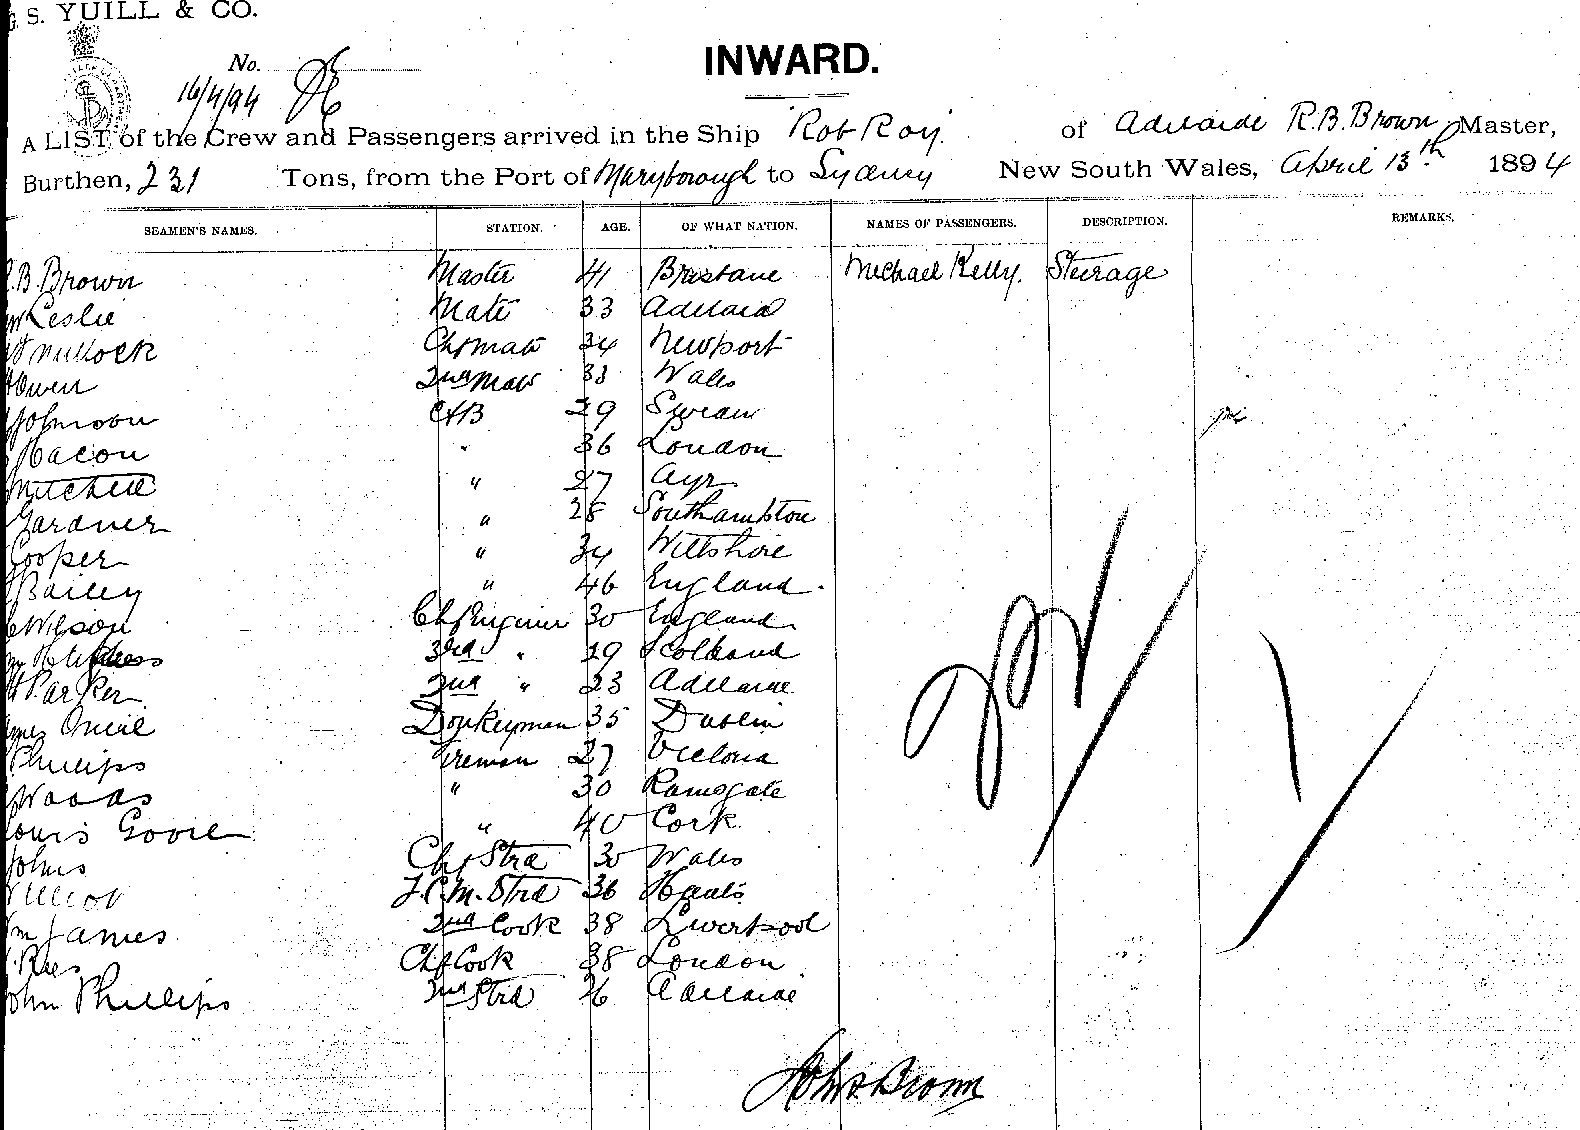 G. S. YUILL & CO.
No.
16/4/94
INWARD.
A LIST of the Crew and Passengers arrived in the Ship Rob Roy. of Adelaide R.B. Brown Master,
Burthen, 231 Tons, from the Port of Maryborough to Sydney New South Wales, April 13th 1894
SEAMEN'S NAMES. STATION. AGE. OF WHAT NATION. NAMES OF PASSENGERS. DESCRIPTION. REMARKS.
.B. Brown Master 41 Brisbane Michael Kelly. Steerage
Leslie Mate 33 Adelaid
Mullock Chf mate 34 Newport
Owen 2nd Mate 33 Wales
Johnson AB 29 Swean
Macon " 36 London
Mitchell " 27 Ayr
Gardner " 28 Southampton
Cooper " 34 Wiltshire
Bailey " 46 England.
Wilson Chf Enginer 30 England
3rd " 29 Scotland
Parker 2nd " 23 Adelaide
Oneil Donkeyman 35 Dublin
Phillips Fireman 27 Victoria
Woods " 30 Ramsgate
Louis " 40 Cork
Johns Chf Strd 30 Wales
Elliot F.C.M. Strd 36 Hants
James 2nd Cook 38 Liverpool
Rees Chf Cook 38 London
John Phillips 2nd Strd 26 Adelaide
John Brown